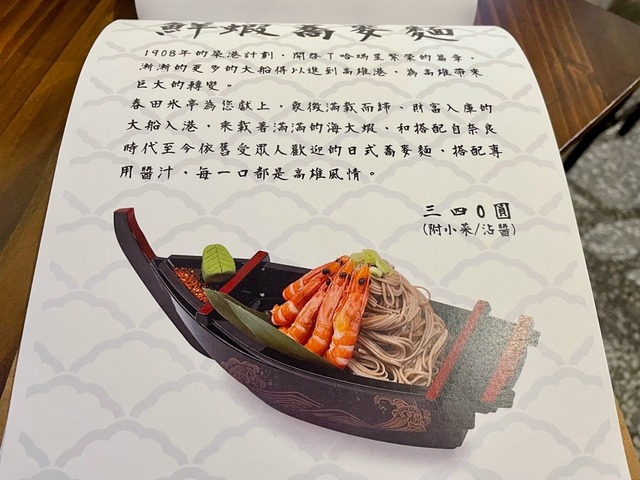 鮮蝦蕎麥麵
1908年的築港計劃，開啓了哈瑪星繁榮的篇章，
漸漸的更多的大船得以進到高雄港，為高雄帶來
巨大的轉變。
春田氷亭為您獻上，象徵滿載而歸、財富入庫的
大船入港，乘載著滿滿的海大蝦，和搭配自奈良
時代至今依舊受眾人歡迎的日式蕎麥麵，搭配專
用醬汁，每一口都是高雄風情。
三四0圓
(附小菜/沾醬)